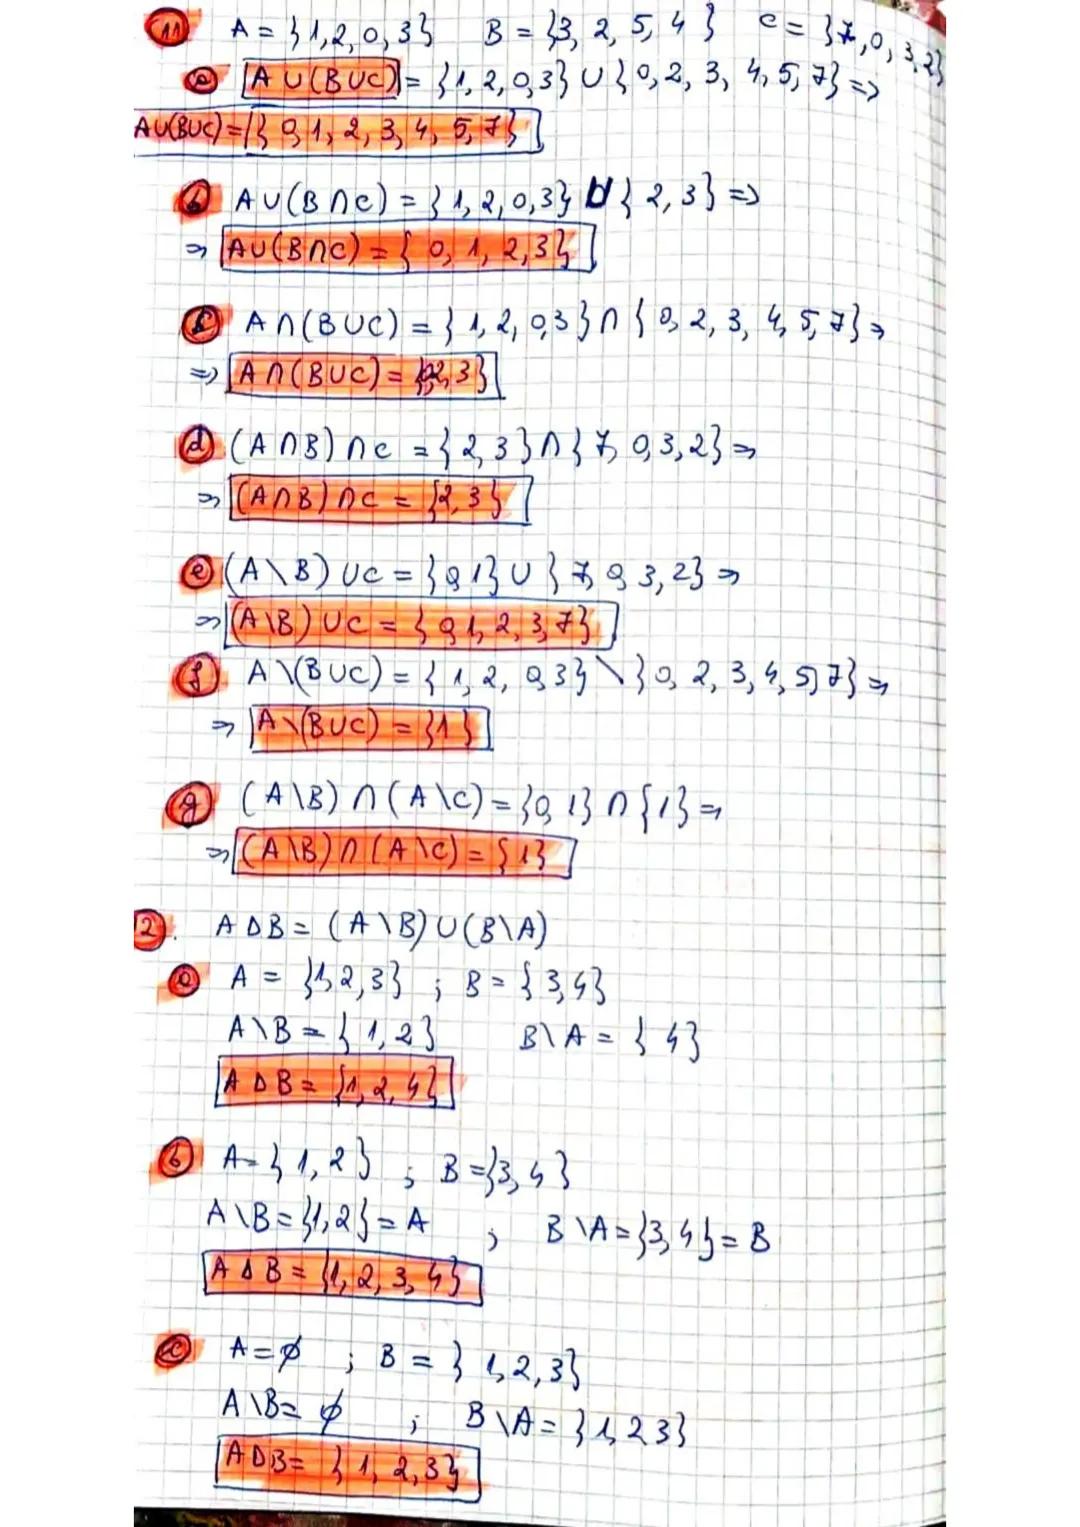 11 A = {1,2,0,3} B = {3, 2, 5, 4} C = {7,0,3,2}
a A∪(B∪C) = {1, 2, 0,3} ∪ {0,2, 3, 4,5,7} =>
A∪(B∪C) = {0,1, 2, 3, 4, 5,7}
b A∪(B∩C) = {1,2,0,3} ∪ {2,3} =>
=> A∪(B∩C) = {0, 1, 2,3}
c A∩(B∪C) = {1,2, 0,3} ∩ {0,2, 3, 4,5,7} =>
=> A∩(B∪C) = {0,2,3}
d (A∩B)∩C = {2,3} ∩ {7, 0,3,2} =>
=> (A∩B)∩C = {2,3}
e (A\B)∪C = {0,1} ∪ {7,0,3,2} =>
=> (A\B)∪C = {0,1,2,3,7}
f A\(B∪C) = {1,2, 0,3} \ {0, 2, 3,4,5,7} =>
=> A\(B∪C) = {1}
g (A\B)∩(A\C) = {0,1} ∩ {1} =>
=> (A\B)∩(A\C) = {1}
12. A Δ B = (A\B)∪(B\A)
a A = {1,2,3} ; B = {3,4}
A\B = {1,2} B\A = {4}
A Δ B = {1, 2, 4}
b A = {1,2} ; B = {3,4}
A\B = {1,2} = A ; B\A = {3,4} = B
A Δ B = {1, 2, 3, 4}
c A = ∅ ; B = {1,2,3}
A\B = ∅ ; B\A = {1,2 3}
A Δ B = {1, 2,3}